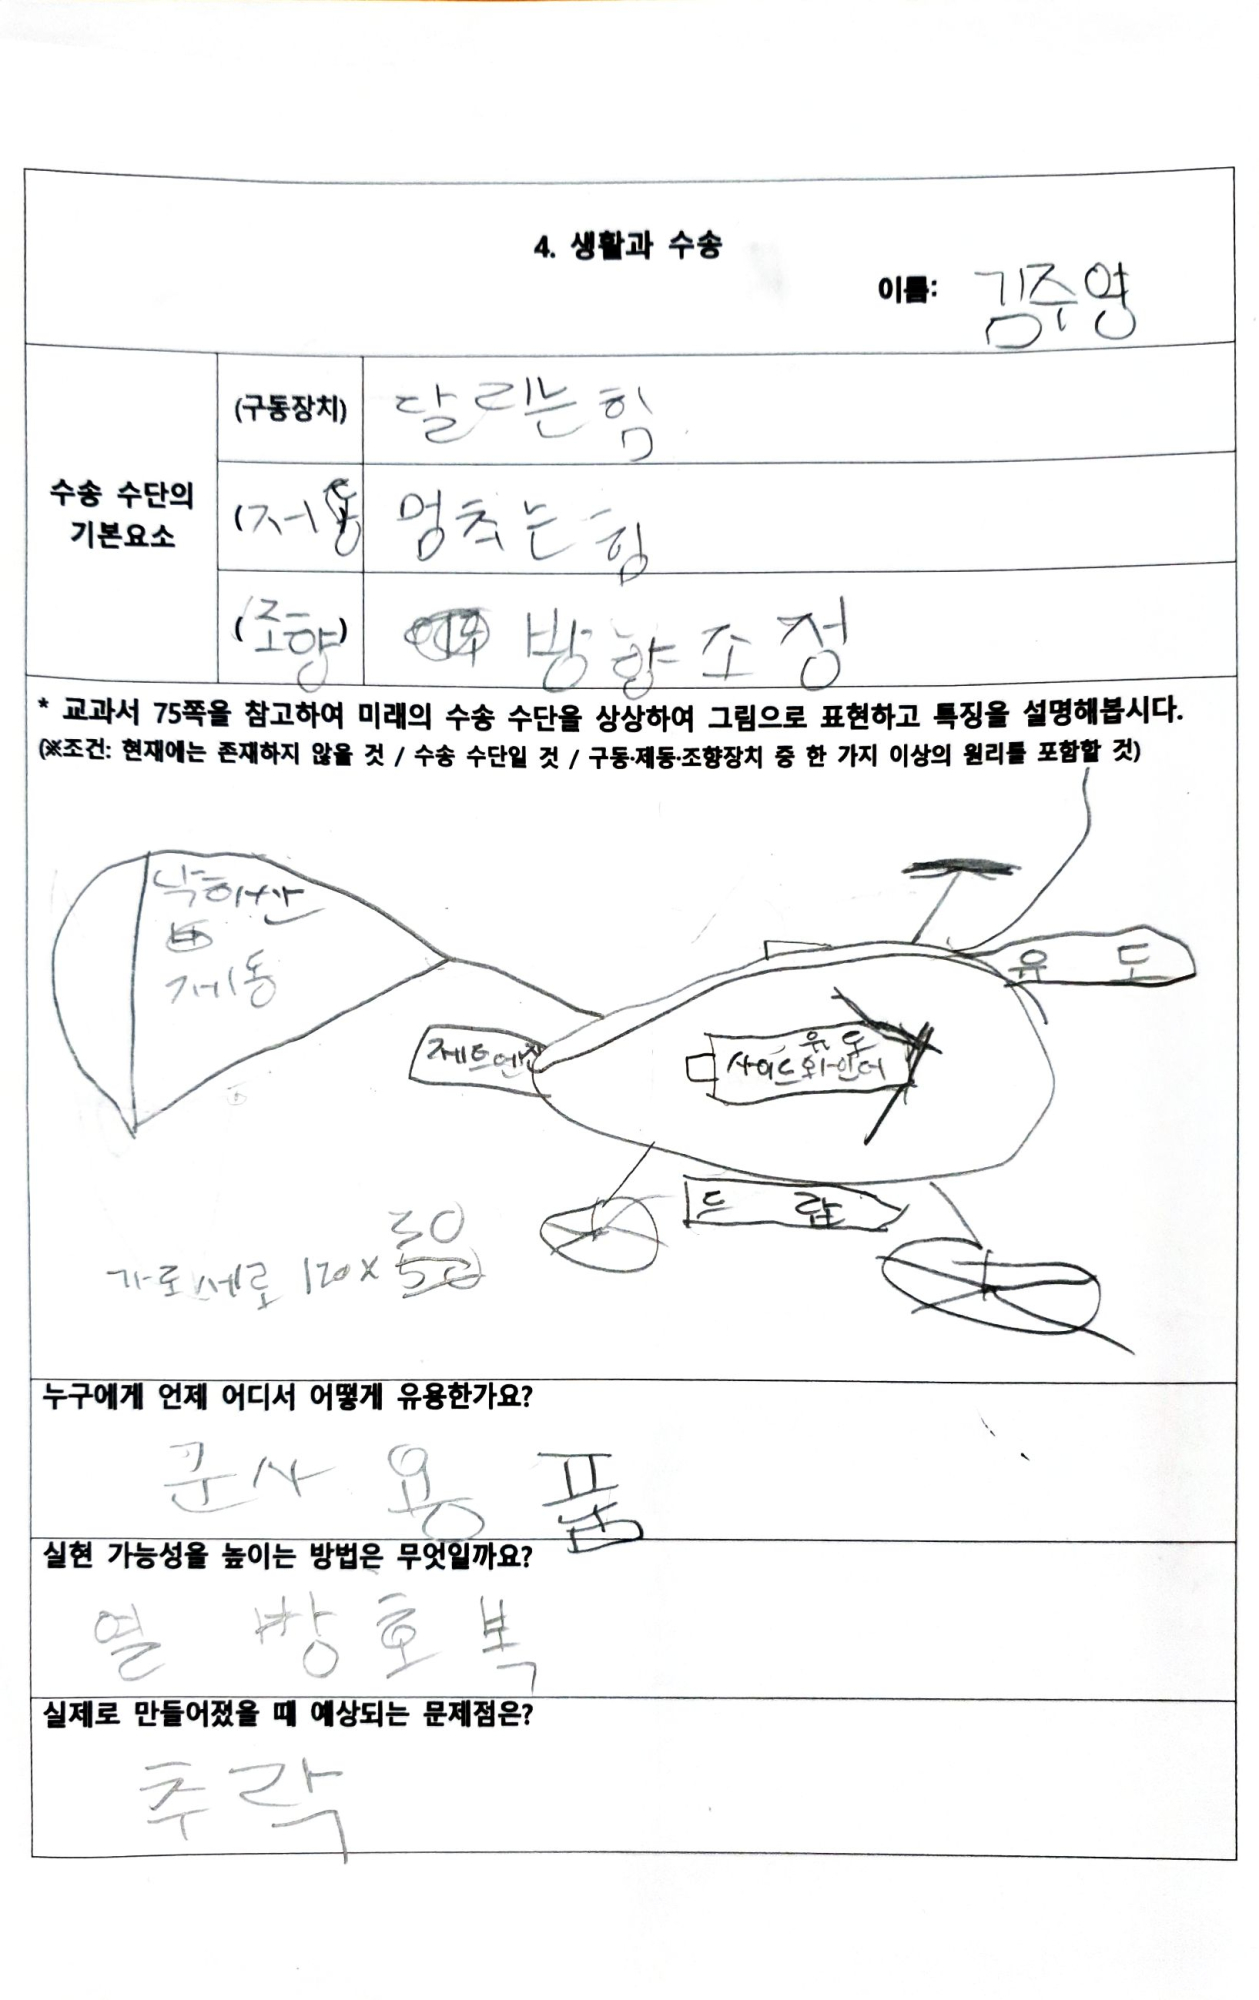 4. 생활과 수송
이름: 김주영
수송 수단의
기본요소
(구동장치) 달리는힘
(제동 멈추는힘
(조향) 방향조정
* 교과서 75쪽을 참고하여 미래의 수송 수단을 상상하여 그림으로 표현하고 특징을 설명해봅시다.
(※조건: 현재에는 존재하지 않을 것 / 수송 수단일 것 / 구동·제동·조향장치 중 한 가지 이상의 원리를 포함할 것)
낙하산
제동
유 도
제트엔진
사이드와인더
가로세로 120x
30
누구에게 언제 어디서 어떻게 유용한가요?
군사 용 품
실현 가능성을 높이는 방법은 무엇일까요?
열 방호복
실제로 만들어졌을 때 예상되는 문제점은?
추락